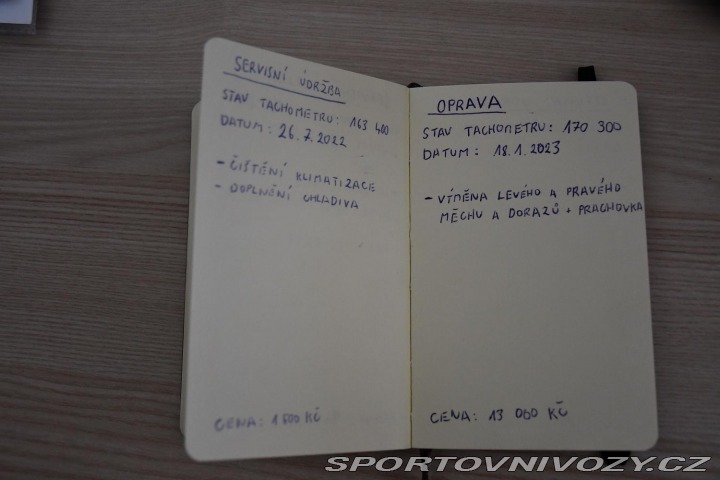 SERVISNÍ ÚDRŽBA
STAV TACHOMETRU: 163 400
DATUM: 26.7.2022
- ČIŠTĚNÍ KLIMATIZACE
- DOPLNĚNÍ CHLADIVA
CENA: 1 500 KČ
OPRAVA
STAV TACHOMETRU: 170 300
DATUM: 18.1.2023
- VÝMĚNA LEVÉHO A PRAVÉHO
MĚCHU A DORAZŮ + PRACHOVKA
CENA: 13 000 KČ
SPORTOVNIVOZY.CZ